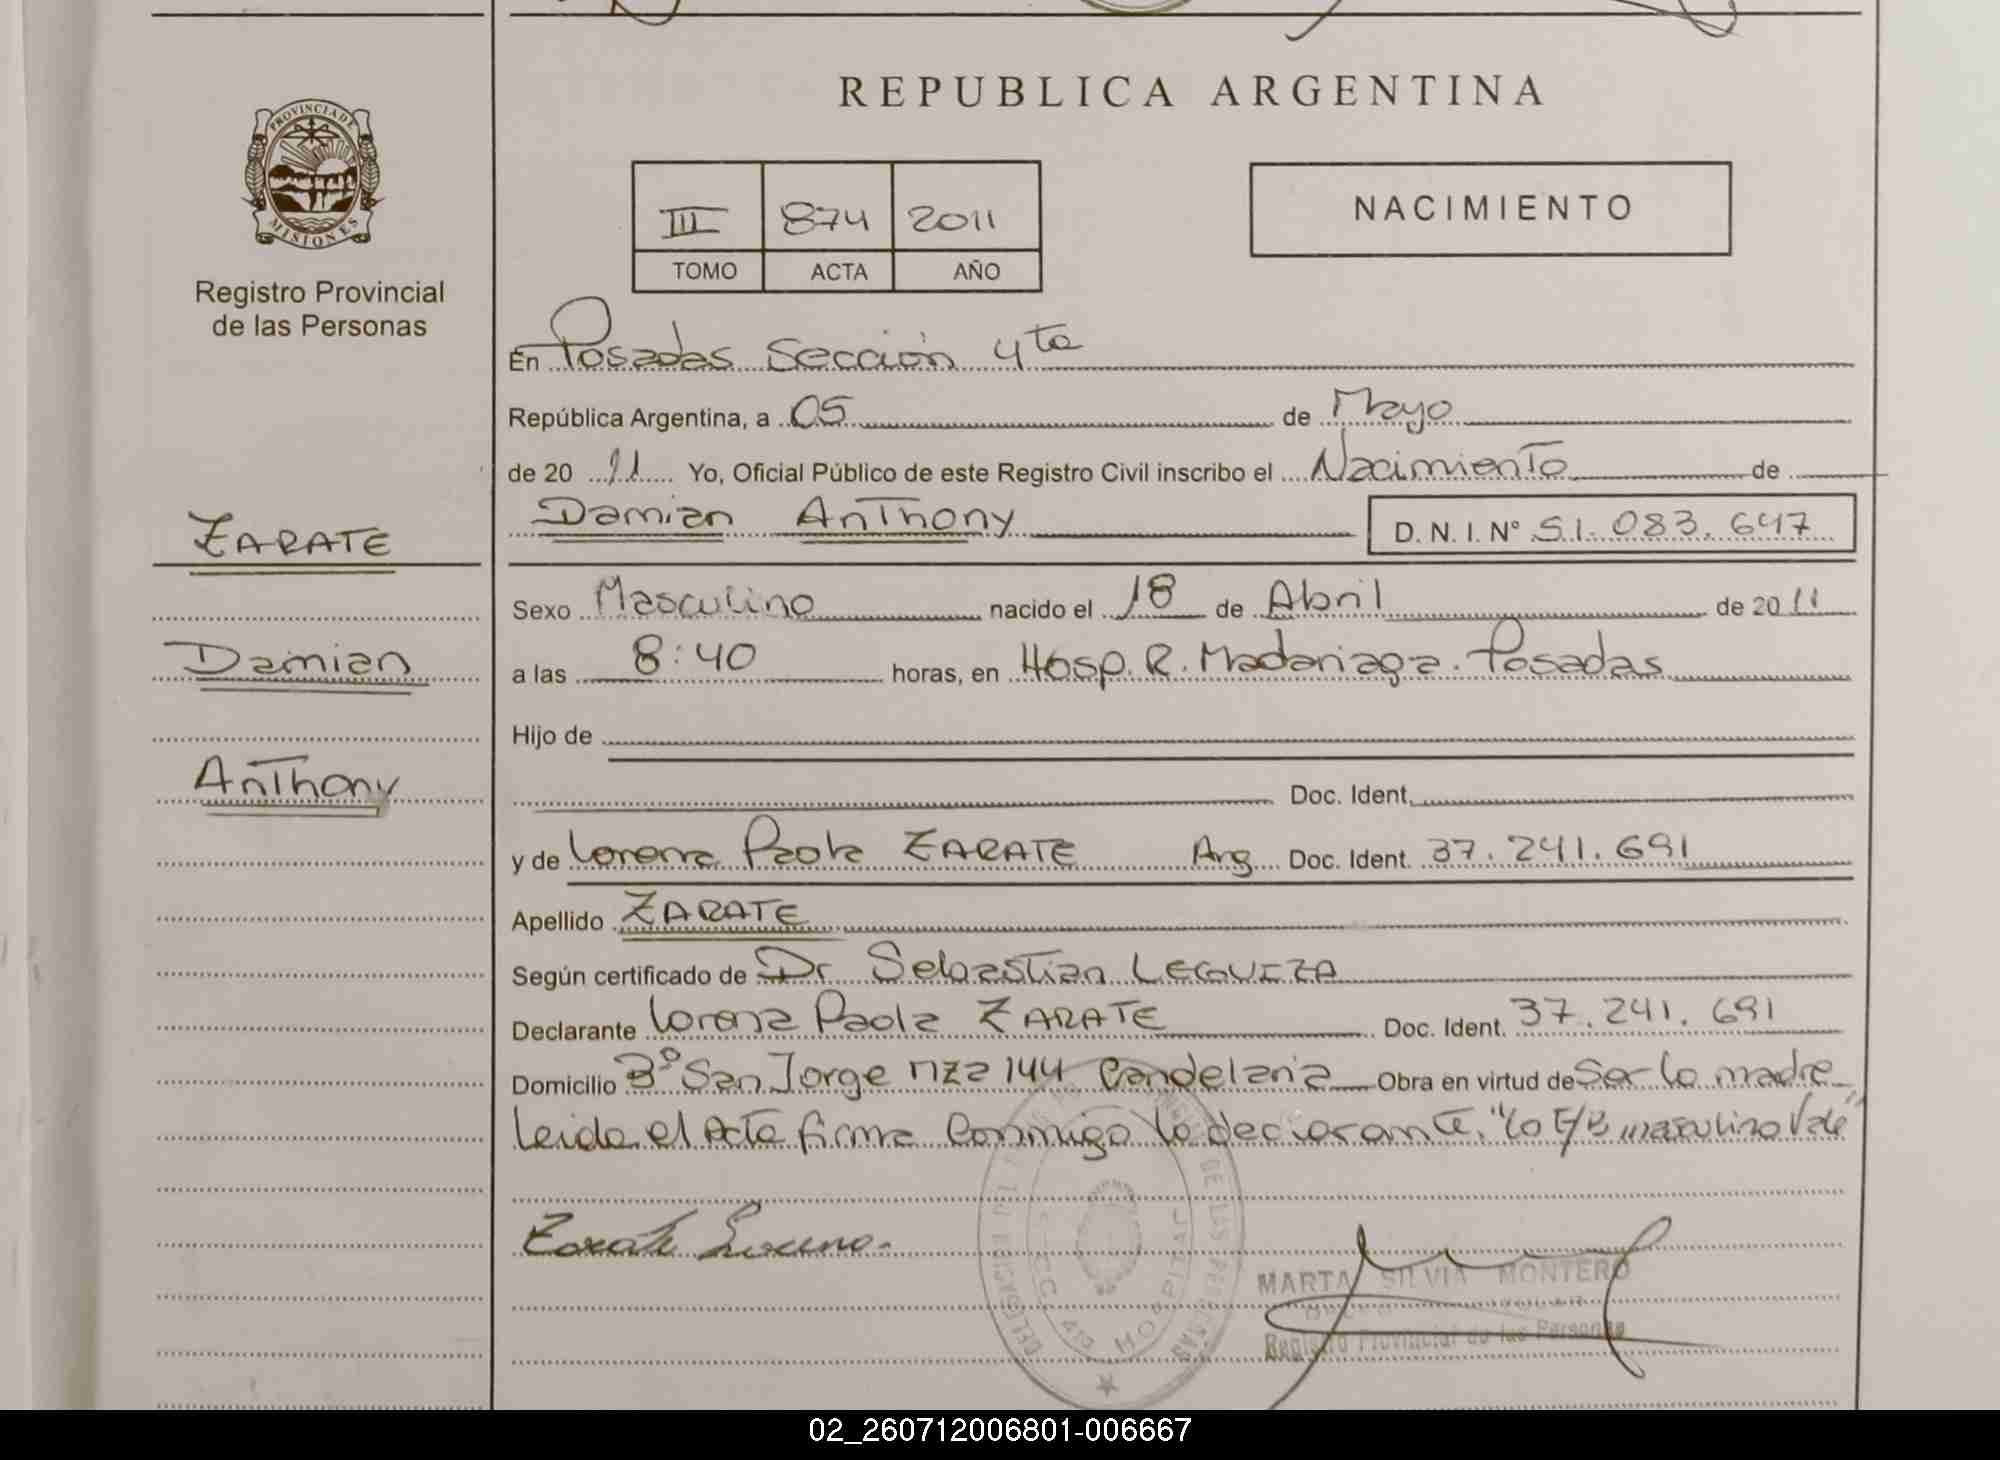 REPUBLICA ARGENTINA
PROVINCIA DE
MISIONES
Registro Provincial
de las Personas
III 874 2011
TOMO ACTA AÑO
NACIMIENTO
En Posadas Sección 4ta
República Argentina, a 05 de Mayo
de 20 11 Yo, Oficial Público de este Registro Civil inscribo el Nacimiento de
Damian Anthony D. N. I. Nº 51.083.647
ZARATE
Damian
Anthony
Sexo Masculino nacido el 18 de Abril de 2011
a las 8:40 horas, en Hosp. R. Madariaga. Posadas
Hijo de
Doc. Ident.
y de Lorena Paola ZARATE Arg Doc. Ident. 37.241.691
Apellido ZARATE
Según certificado de Dr Sebastian LEGUIZA
Declarante Lorena Paola ZARATE Doc. Ident. 37.241.691
Domicilio Bº San Jorge mza 144 Candelaria Obra en virtud de Ser la madre
leida el Acta firma conmigo la declarante. "lo E/L masculino Vale"
Zarate Lorena.
DELEGACION DE LAS PERSONAS
SECC 4ta HOSPITAL
MARTA SILVIA MONTERO
Registro Provincial de las Personas
02_260712006801-006667